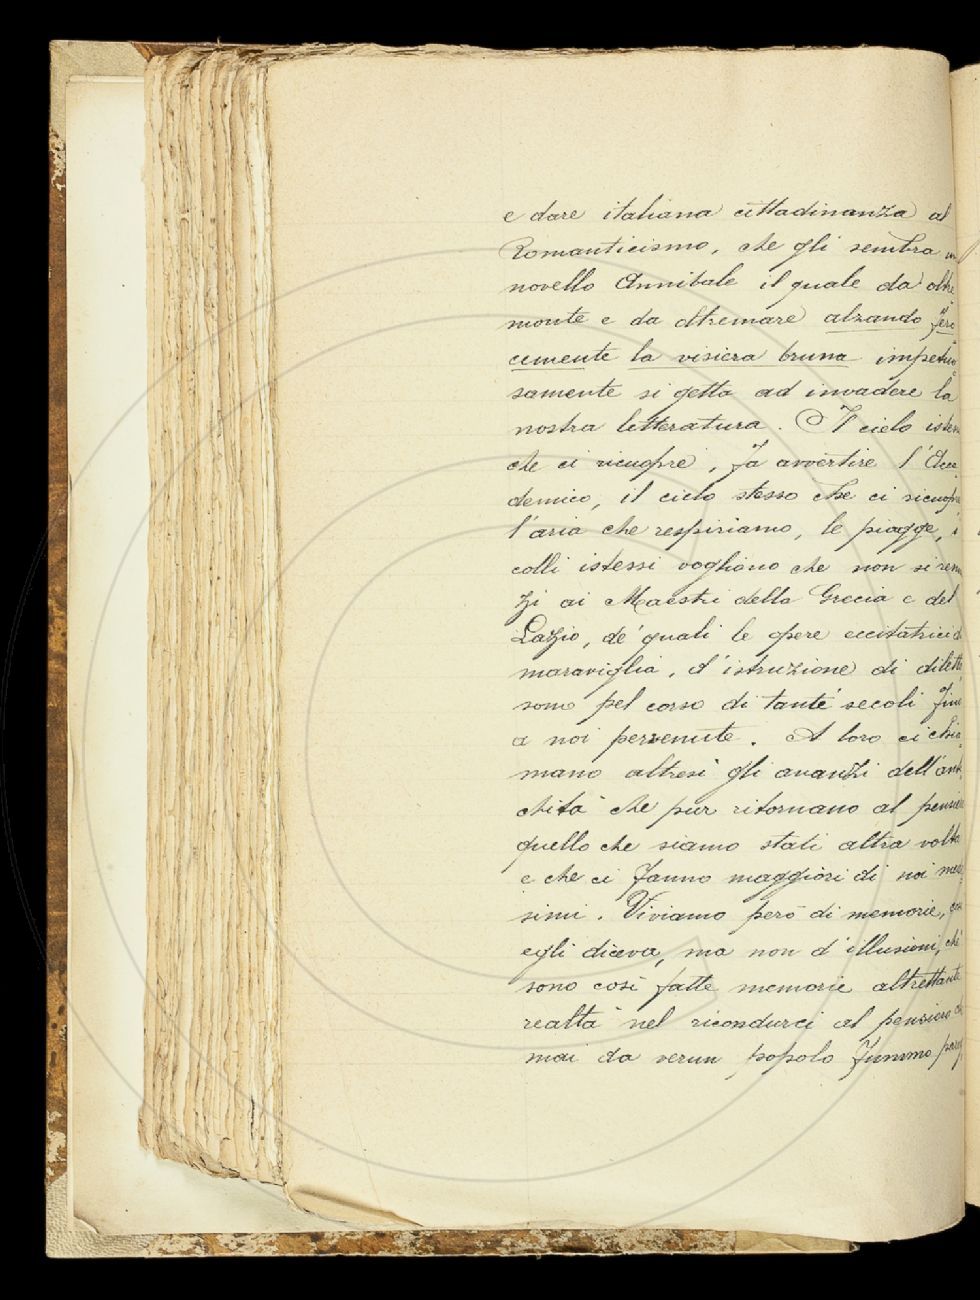 e dare italiana cittadinanza al
Romanticismo, che gli sembra un
novello Annibale il quale da oltre
monte e da oltremare alzando fero
cemente la visiera bruna impetuo
samente si getta ad invadere la
nostra letteratura. Il cielo istesso
che ci ricuopre, fa avvertire l'Acca
demico, il cielo stesso che ci ricuopre
l'aria che respiriamo, le piagge, i
colli istessi vogliono che non si renun
zi ai Maestri della Grecia e del
Lazio, de' quali le opere eccitatrici di
maraviglia, d'istruzione di diletto
sono pel corso di tante secoli fino
a noi pervenute. A loro ci chia
mano altresì gli avanzi dell'anti
chità che pur ritornano al pensiero
quello che siamo stati altra volta
e che ci fanno maggiori di noi mede
simi. Viviamo però di memorie, così
egli diceva, ma non d'illusioni, chè
sono così fatte memorie altrettante
realtà nel ricondurci al pensiero che
mai da verun popolo fummo